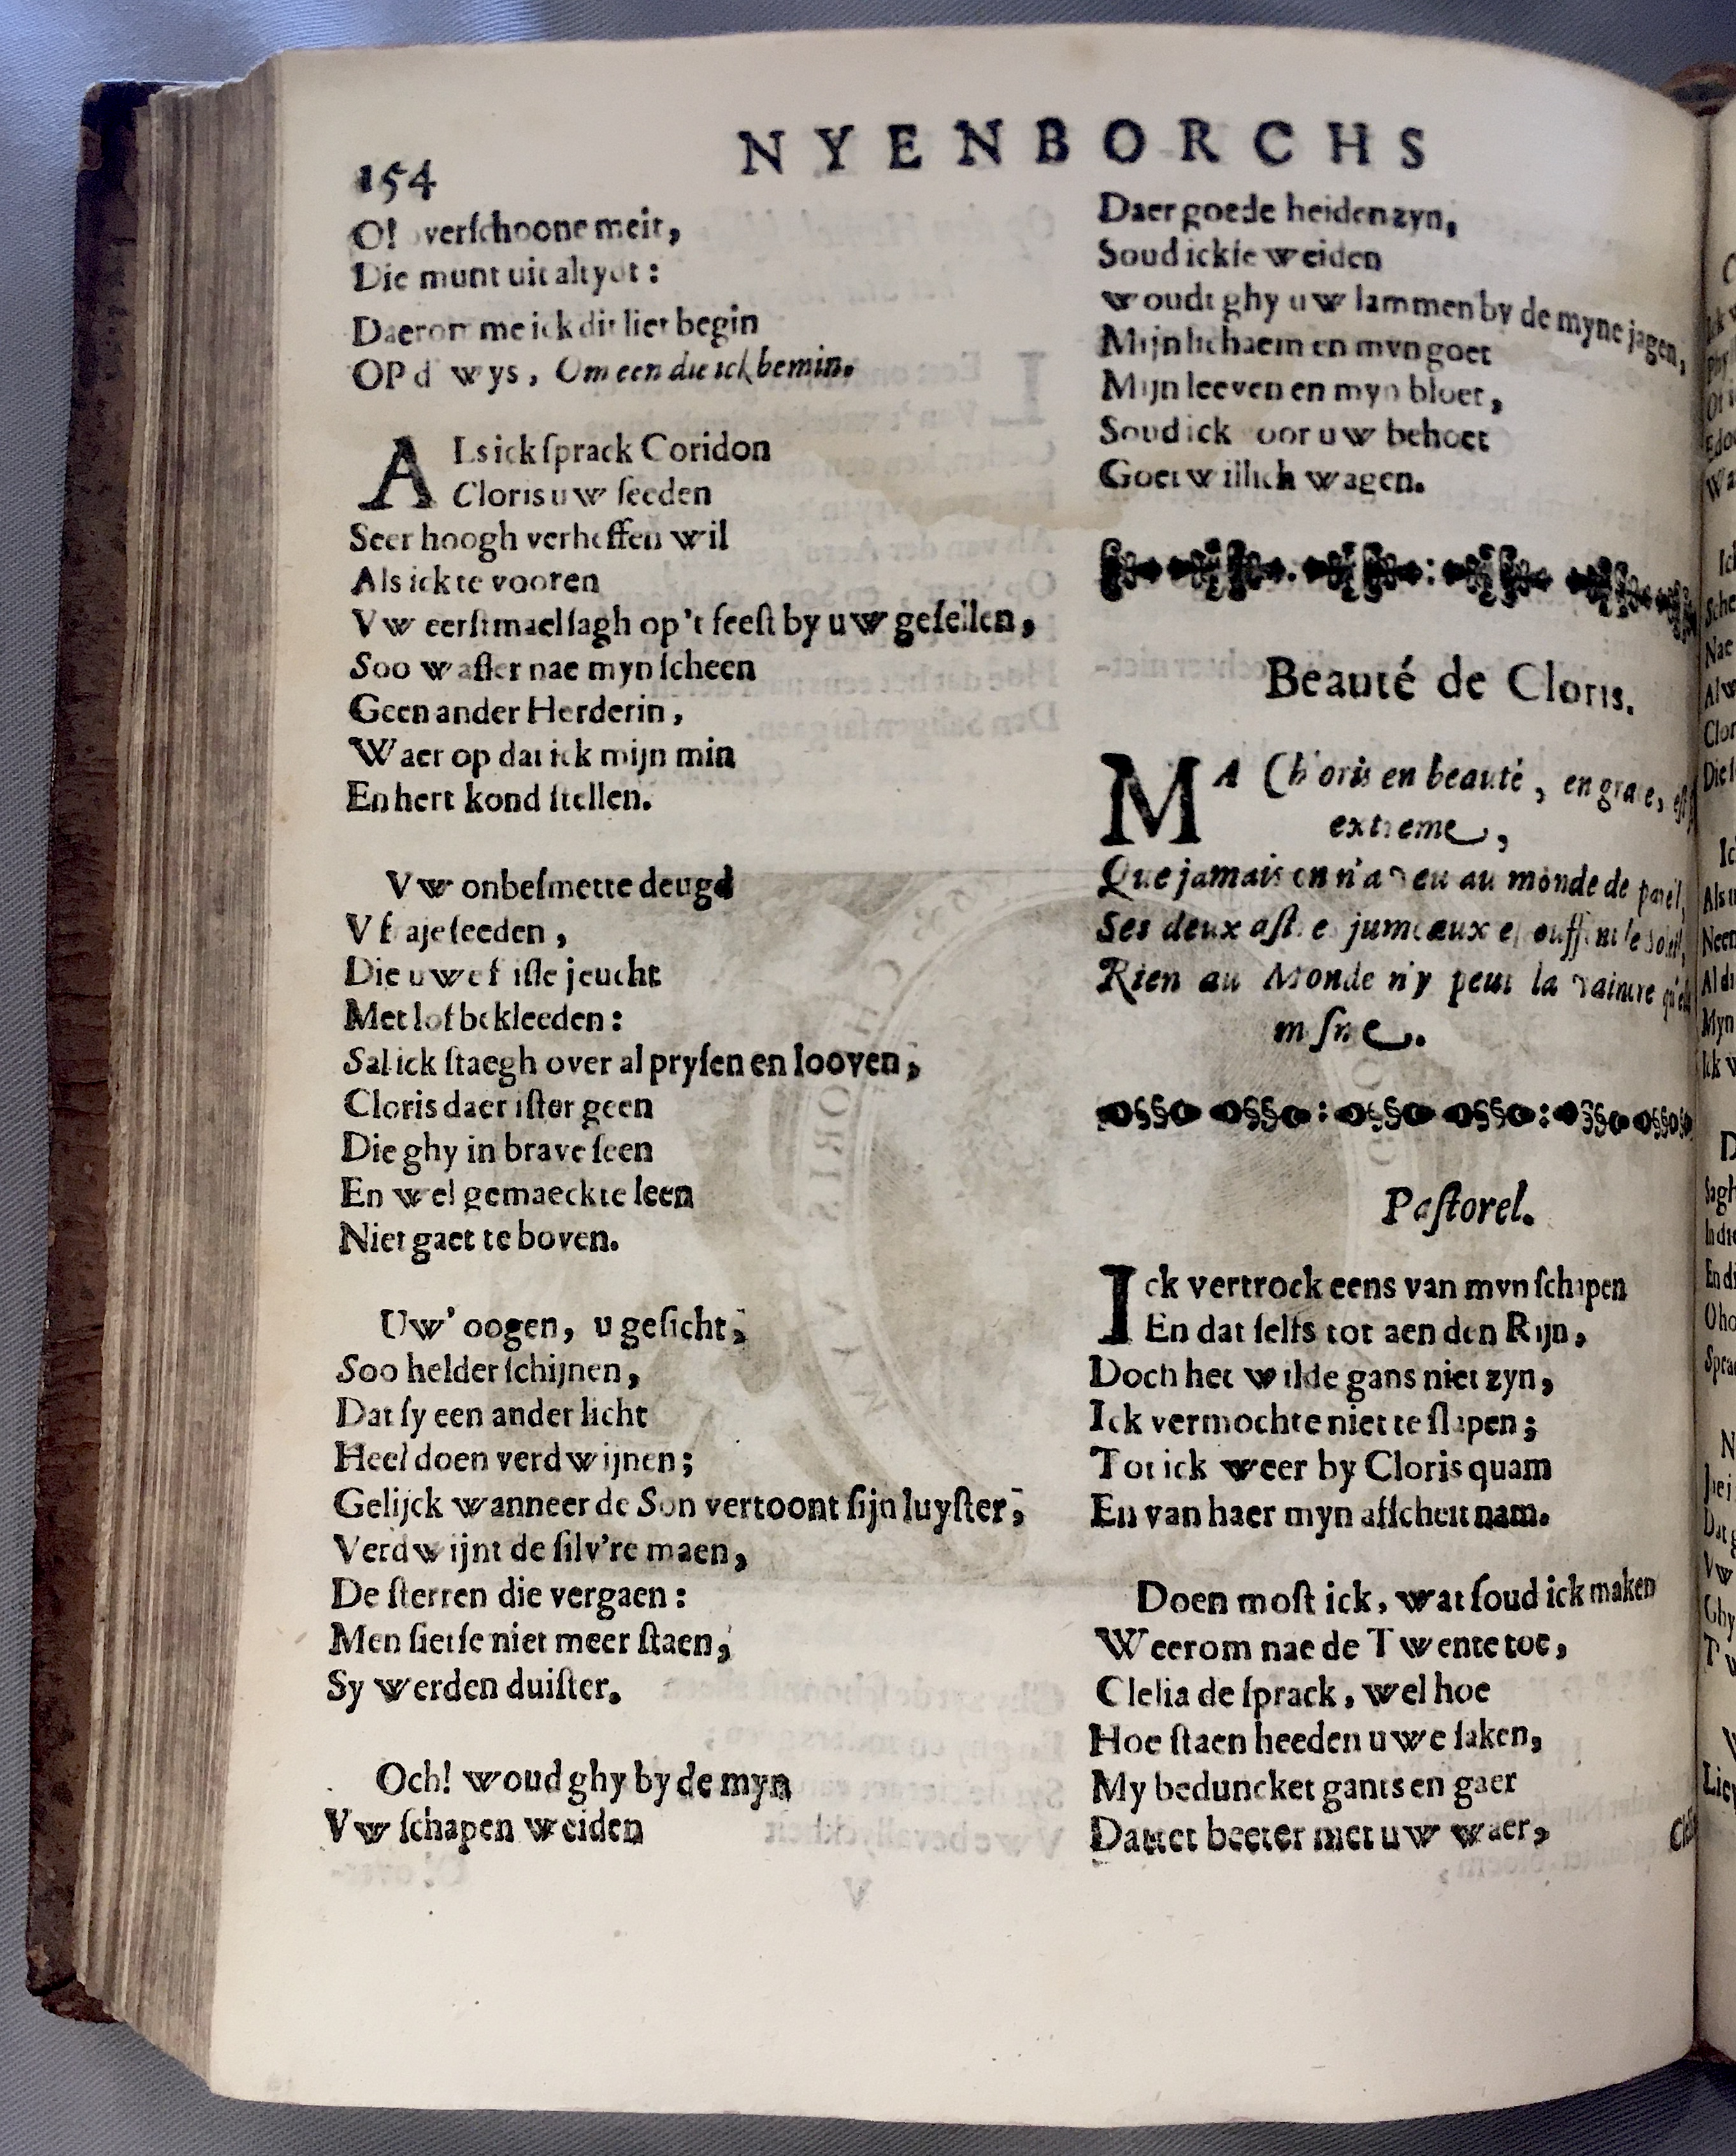 154
NYENBORCHS
O! verſchoone meit,
Die munt uit altydt :
Daerom me ick dit liet begin
OP d wys, Om een die ick bemin.
ALs ick ſprack Coridon
Cloris uw ſeeden
Seer hoogh verheffen wil
Als ick te vooren
Vw eerſtmael ſagh op't feeſt by uw geſellen,
Soo waſter nae myn ſcheen
Geen ander Herderin,
Waer op dat ick mijn min
En hert kond ſtellen.
Vw onbeſmette deugd
ſeeden,
Die jeucht
Met lof bekleeden :
Sal ick ſtaegh over al pryſen en looven,
Cloris daer iſter geen
Die ghy in brave ſeen
En wel gemaeckte leen
Niet gaet te boven.
Uw' oogen, u geſicht,
Soo helder ſchijnen,
Dat ſy een ander licht
Heel doen verdwijnen;
Gelijck wanneer de Son vertoont ſijn luyſter,
Verdwijnt de ſilv're maen,
De ſterren die vergaen :
Men ſiet ſe niet meer ſtaen,
Sy werden duiſter.
Och! woud ghy by de myn
Vw ſchapen weiden
Daer goede heiden zyn,
Soud ick ſe weiden
woudt ghy uw lammen by de myne jagen,
Mijn lichaem en myn goet
Mijn leeven en myn bloet,
Soud ick oor uw behoet
Goet willich wagen.
Beauté de Cloris.
MA Chloris en beauté, en grace,
extreme,
Que jamais on n'a veu au monde de pareil,
Ses deux aſtres jumeaux eſtouffent le Soleil,
Rien au Monde n'y peut la vaincre
meſme.
Paſtorel.
Ick vertrock eens van myn ſchapen
En dat ſelfs tot aen den Rijn,
Doch het wilde gans niet zyn,
Ick vermochte niet te ſlapen;
Tot ick weer by Cloris quam
En van haer myn afſcheit nam.
Doen moſt ick, wat ſoud ick maken
Weerom nae de Twente toe,
Clelia de ſprack, wel hoe
Hoe ſtaen heeden uwe ſaken,
My beduncket gants en gaer
Dattet beeter met uw waer,